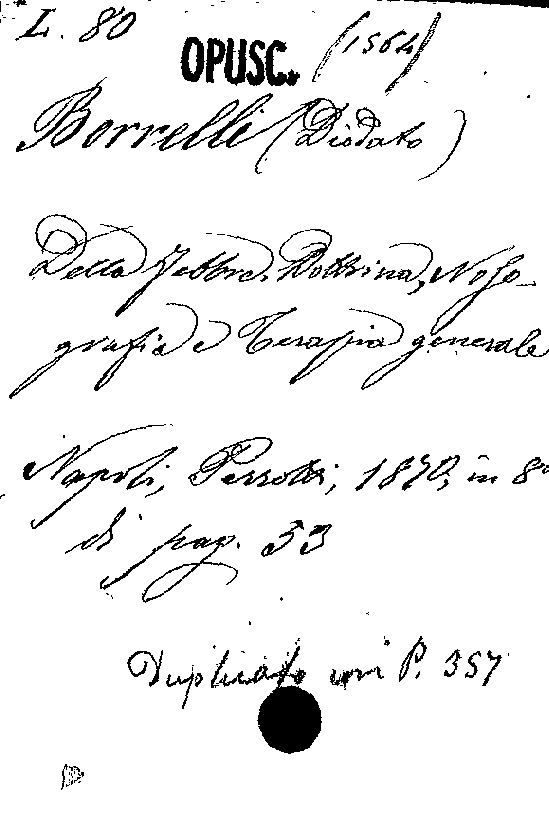 L. 80
OPUSC. (1564)
Borrelli (Diodato)
Della febbre. Dottrina, Noso-
grafia e Terapia generale
Napoli, Perrotti, 1870, in 8º
di pag. 53
Duplicato P. 357